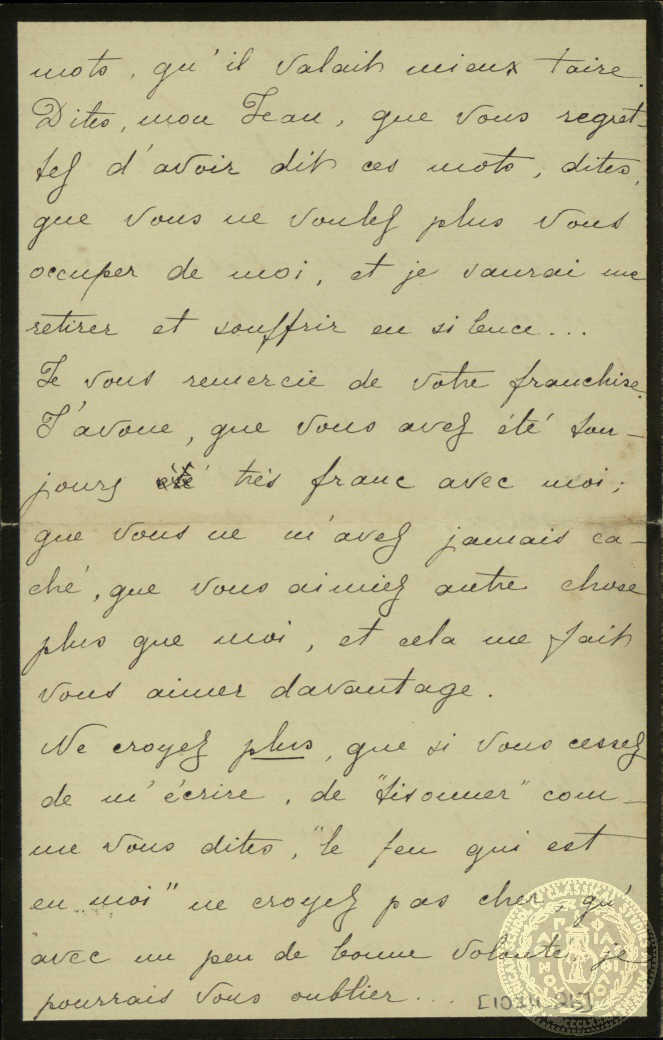 mots, qu'il valait mieux taire.
Dites, mon Jean, que vous regret-
tez d'avoir dit ces mots, dites,
que vous ne voulez plus vous
occuper de moi, et je saurai me
retirer et souffrir en silence...
Je vous remercie de votre franchise.
J'avoue, que vous avez été tou-
jours été très franc avec moi;
que vous ne m'avez jamais ca-
ché, que vous aimiez autre chose
plus que moi, et cela me fait
vous aimer davantage.
Ne croyez plus, que si vous cessez
de m'écrire, de "tisonner" com-
me vous dites, "le feu qui est
en moi" ne croyez pas cher, qu'
avec un peu de bonne volonté, je
pourrais vous oublier...